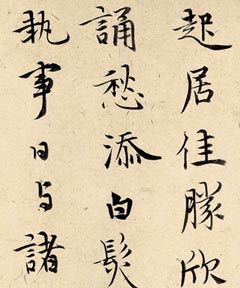 起居佳勝欣
誦愁添白髮
執事日与諸